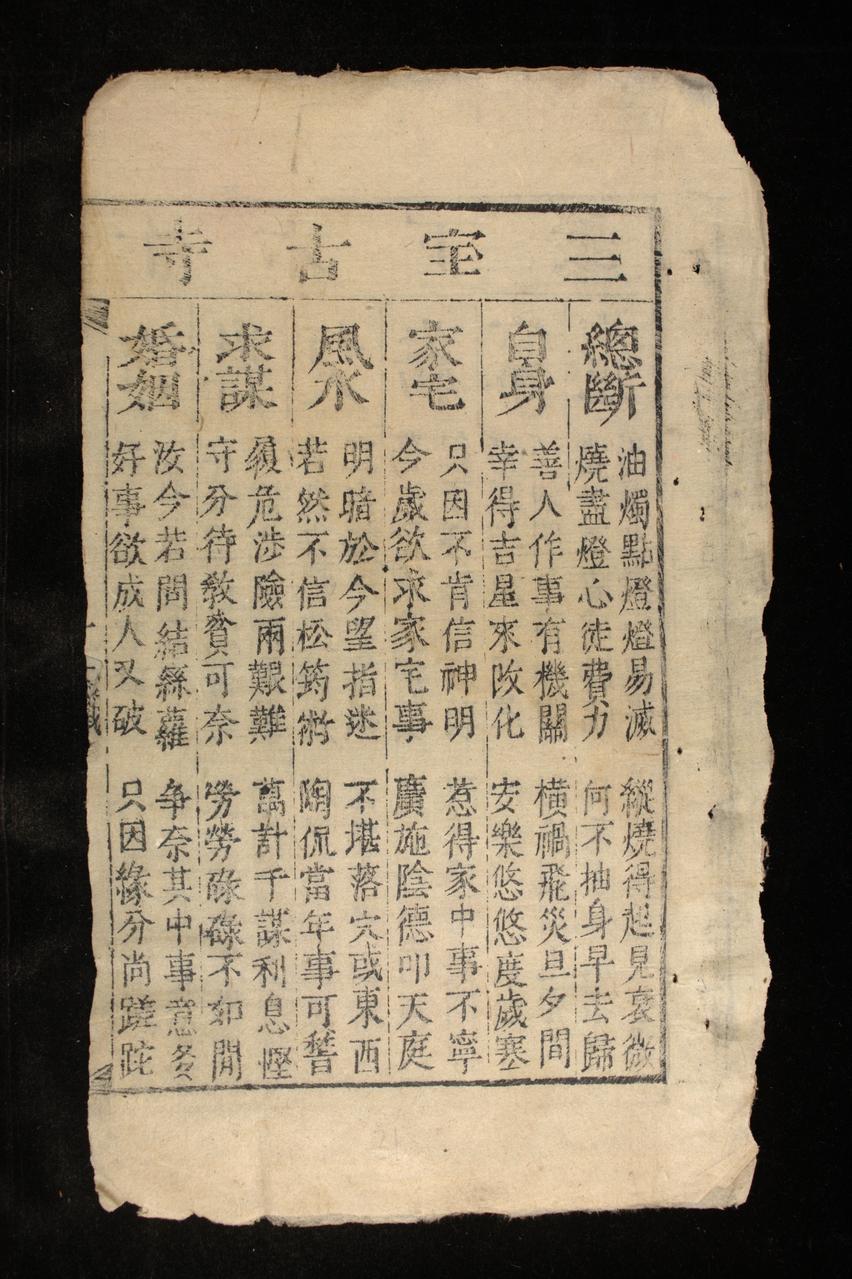 三宝古寺
總斷
油燭點燈燈易滅 縱燒得起見衰微
燒盡燈心徒費力 何不抽身早去歸
自身
善人作事有機關 橫禍飛災旦夕間
幸得吉星來改化 安樂悠悠度歲寒
家宅
只因不肯信神明 惹得家中事不寧
今歲欲求家宅事 廣施陰德叩天庭
風水
明暗於今望指迷 不堪落穴或東西
若然不信松筠術 陶侃當年事可誓
求謀
履危涉險兩艱難 萬計千謀利息慳
守分待教貧可奈 勞勞碌碌不如閒
婚姻
汝今若問結絲蘿 争奈其中事意多
好事欲成人又破 只因緣分尚蹉跎